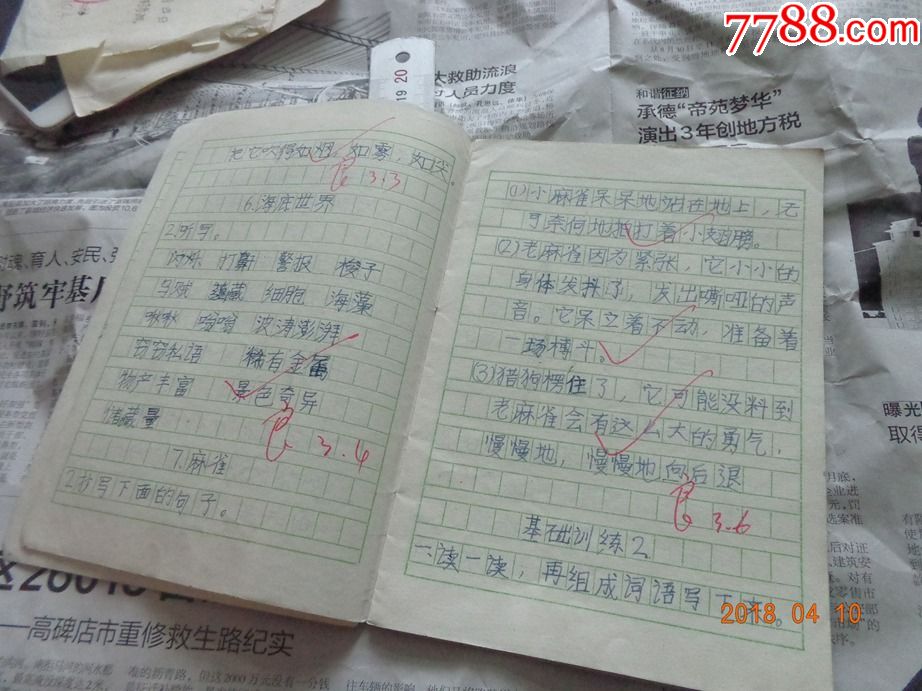 7788.com
19 20
大救助流浪
人员力度
和谐征纳
承德“帝苑梦华”
演出3年创地方税
育人、安民、
野筑牢基
高碑店市重修救生路纪实
曝光
取得
把它吹得如烟，如雾，如尘。
良 3.3
6.海底世界
2.听写。
闪烁 打鼾 警报 梭子
乌贼 蕴藏 细胞 海藻
啾啾 嗡嗡 波涛澎湃
窃窃私语 稀有金属
物产丰富 景色奇异
储藏量
良 3.4
7.麻雀
2.抄写下面的句子。
(1)小麻雀呆呆地站在地上，无
可奈何地拍打着小翅膀。
(2)老麻雀因为紧张，它小小的
身体发抖了，发出嘶哑的声
音。它呆立着不动，准备着
一场搏斗。
(3)猎狗楞住了，它可能没料到
老麻雀会有这么大的勇气，
慢慢地，慢慢地向后退
良 3.6
基础训练2
一、读一读，再组成词语写下来。
2018 04 10